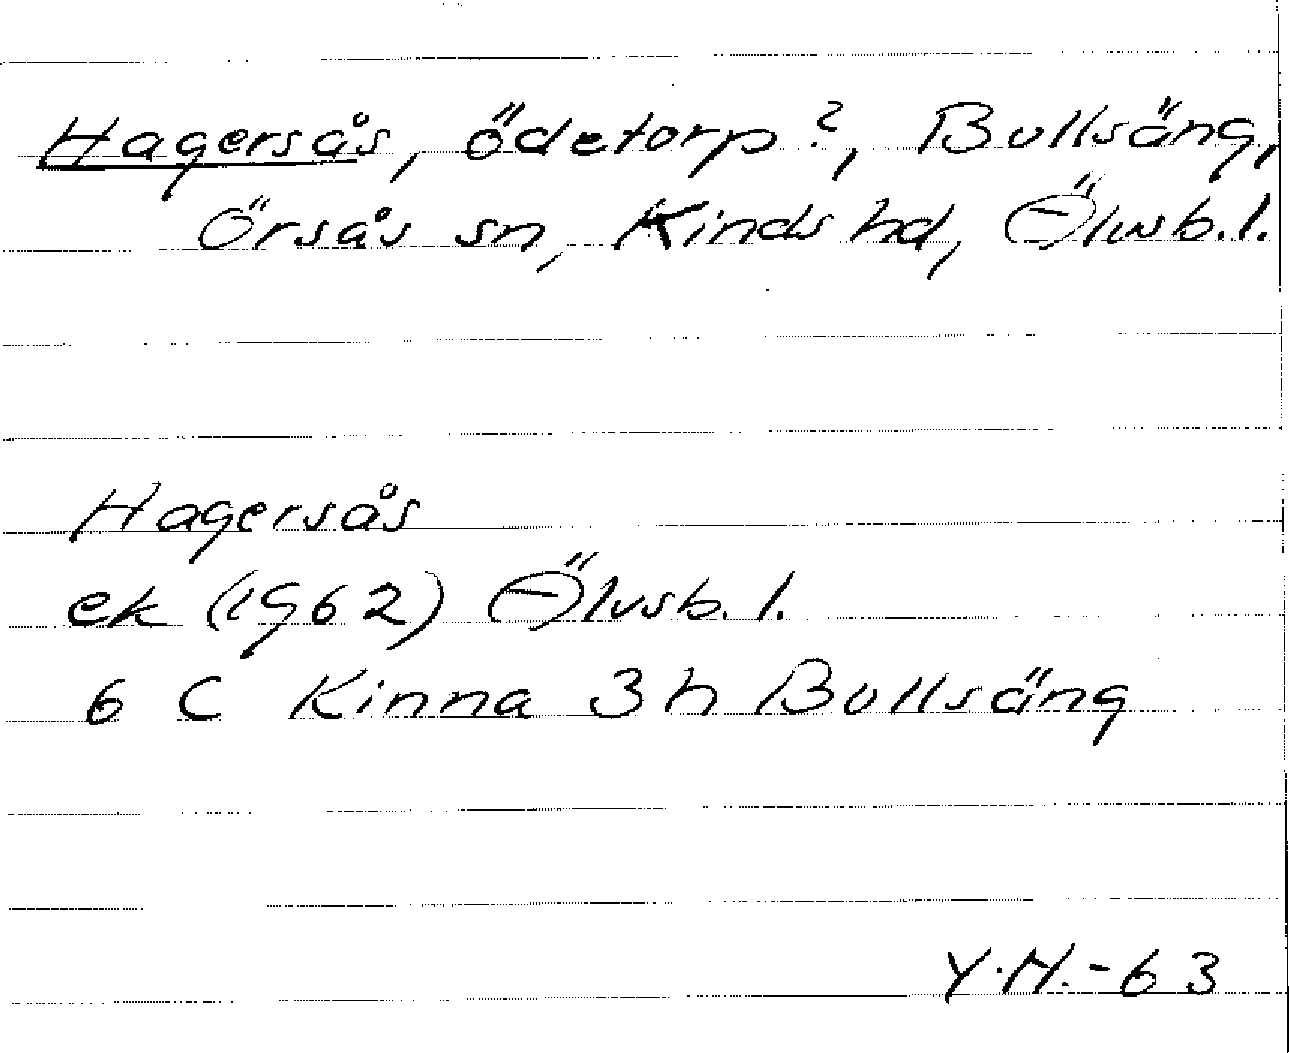 Hagersås, ödetorp?, Bullsäng,
Örsås sn, Kinds hd, Älvsb. l.
Hagersås
ek (1962) Älvsb. l.
6 C Kinna 3 h Bullsäng
Y.H.-63